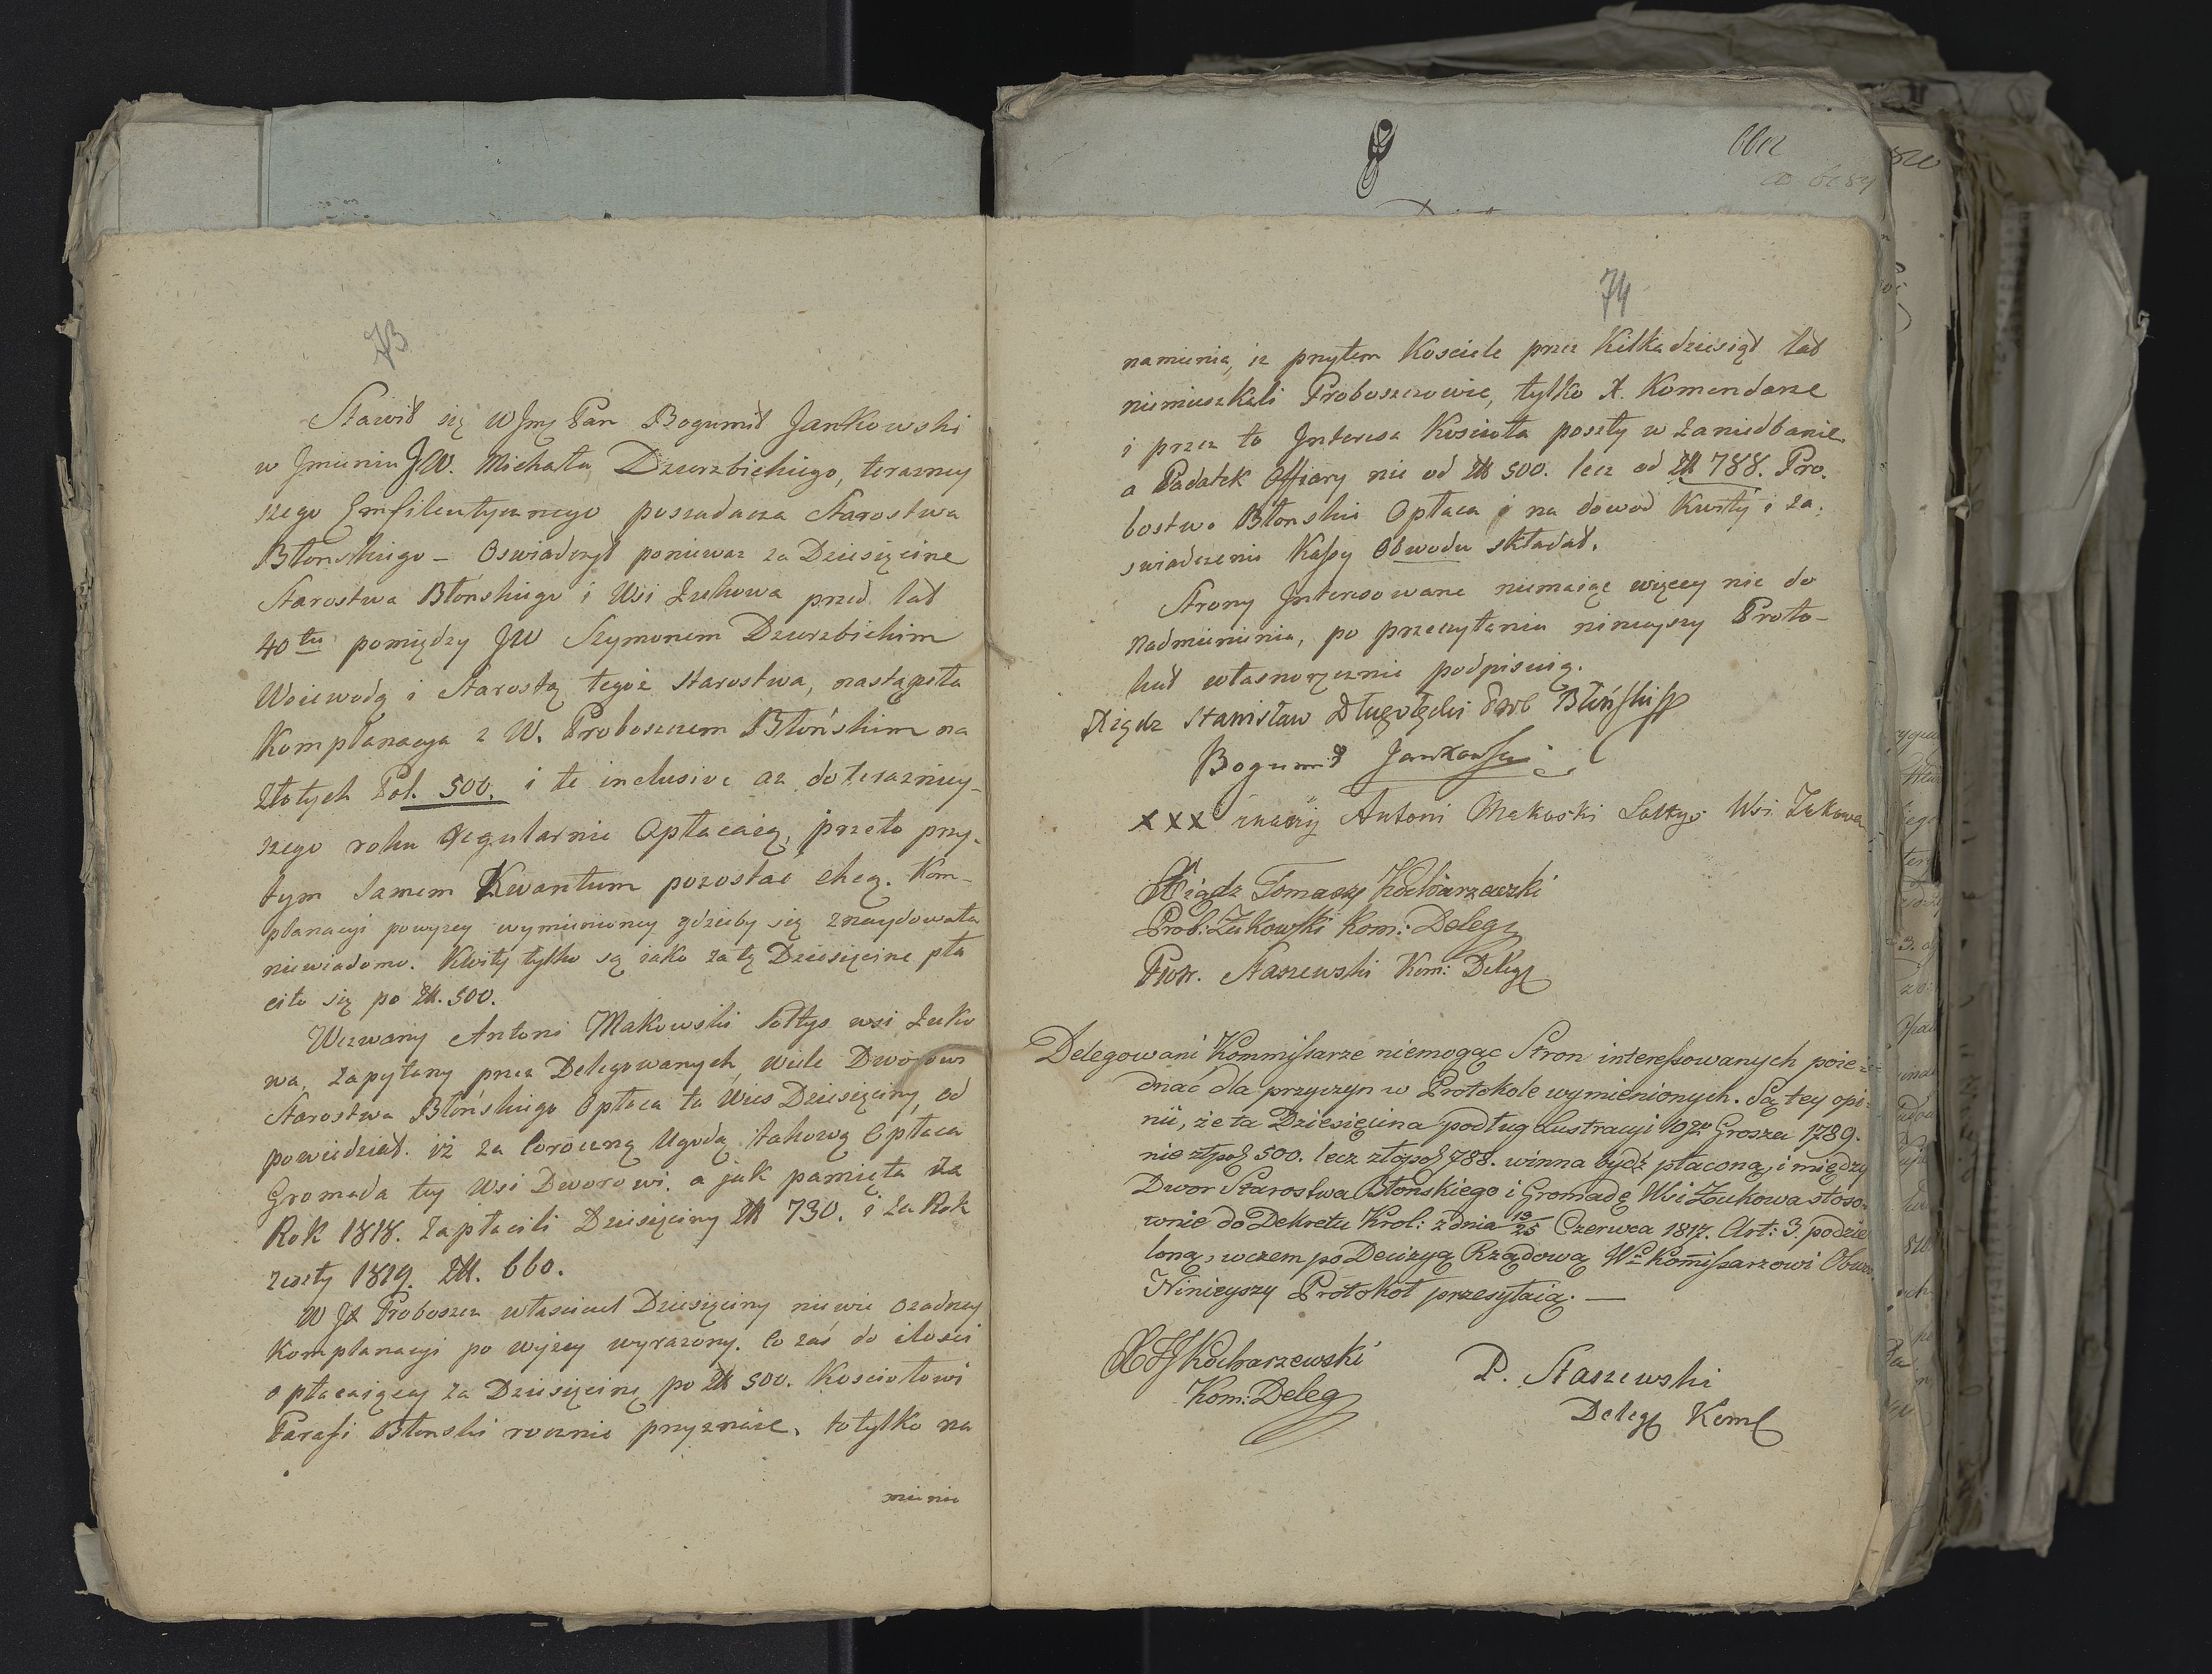 73
Stawił się WJmć Pan Bogumił Jankowski
w Jmieniu JW. Michała Dzierzbickiego, terazniey
szego Emfileutycznego possadacza Starostwa
Błonskiego – Oswiadczył poniewaz za Dziesięcine
Starostwa Błonskiego i Wsi Żukowa przed lat
40tu pomiędzy JW Szymonem Dzierzbickim
Woiewodą i Starostą tegoż Starostwa, nastąpiła
Komplanacya z W. Proboszczem Błońskim na
Złotych Pol. 500. i te inclusive az do terazniey-
szego roku regularnie Opłacaią, przeto przy-
tym samem Kwantum pozostać chcą. Kom-
planacyi powyzey wymienioney gdzieby się znaydowała
niewiadomo. Kwity tylko są iako za tę Dziesięcine pła
ciło się po Zł. 500.
Wezwany Antoni Makowski Sołtys wsi Żuko
wa, zapytany przez Delegowanych, wiele Dworowi
Starostwa Błońskiego Opłaca ta Wieś Dziesięciny, od
powiedział. iż za Coroczną Ugodą takową Opłaca
Gromada tey Wsi Dworowi. a jak pamięta za
Rok 1818. Zapłacili Dziesięciny Zł 730. i za Rok
zeszły 1819. Zł. 660.
W JX Proboszcz właściciel Dziesięciny niewie ożadney
Komplanacyi po wyżey wyrazony. Co zaś do ilości
opłacaiącey za Dziesięcinę po Zł 500. Kościołowi
Parafi Błonski rocznie przyznaie, to tylko na
mienia
74
namienia, iz przytem Kosciele przez Kilkadziesiąt lat
niemieszkali Proboszczowie, tylko X. Komendarze
i przez to Jnteressa Kościoła poszły w zaniedbanie.
a Padatek Offiary nie od Zł 500. lecz od Zł 788. Pro-
bostwo Błonskie Opłaca i na dowod Kwity i za-
swiadczenie Kassy Obwodu składał.
Strony Jnteresowane niemaiąc więcey nic do
nadmienienia, po przeczytaniu ninieyszy Proto-
kuł własnoręcznie podpisuią.
Xiądz Stanisław Długołęcki Prob Błoński
Bogumił Jankowski
XXX znaczy Antoni Makoski Sołtys Wsi Żukowa
Xiądz Tomasz Kocharzewski
Prob: Żukowski Kom: Deleg
Piotr. Staszewski Kom: Deleg
Delegowani Kommissarze niemogąc Stron interessowanych poie-
dnać dla przyczyn w Protokole wymienionych. Są tey opi-
nii, że ta Dziesięcina podług Lustracyi 10go Grosza 1789.
nie złpol 500. lecz złopol 788. winna bydź płaconą, i między
Dwor Starostwa Błonskiego i Gromadę Wsi Żukowa stoso-
wnie do Dekretu Krol: z dnia 13/25 Czerwca 1817. Art: 3. podzie
loną, wczem po Decizyą Rządową Wu Kommissarzowi Obwo
Ninieyszy Protokoł przesyłaią. —
X T Kocharzewski
Kom: Deleg
P. Staszewski
Deleg Kom